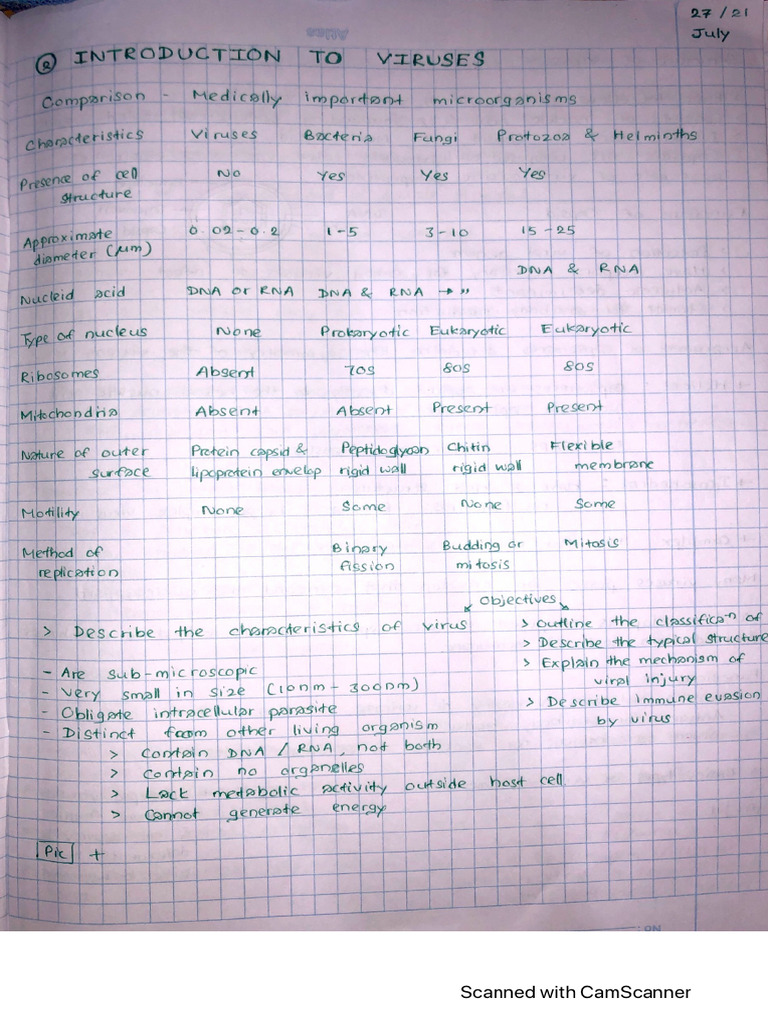 27/21
July
② INTRODUCTION TO VIRUSES
Comparison - Medically important microorganisms
Characteristics Viruses Bacteria Fungi Protozoa & Helminths
Presence of cell structure No Yes Yes Yes
Approximate diameter (μm) 0.02-0.2 1-5 3-10 15-25
DNA & RNA
Nucleid acid DNA or RNA DNA & RNA → "
Type of nucleus None Prokaryotic Eukaryotic Eukaryotic
Ribosomes Absent 70S 80S 80S
Mitochondria Absent Absent Present Present
Nature of outer Protein capsid & Peptidoglycan Chitin Flexible
surface lipoprotein envelop rigid wall rigid wall membrane
Motility None Some None Some
Method of Binary Budding or Mitosis
replication fission mitosis
Objectives
> Describe the characteristics of virus
> Outline the classifican of
> Describe the typical structure
> Explain the mechanism of
viral injury
> Describe immune evasion
by virus
- Are sub-microscopic
- Very small in size (10nm - 300nm)
- Obligate intracellular parasite
- Distinct from other living organism
> Contain DNA / RNA, not both
> Contain no organelles
> Lack metabolic activity outside host cell.
> Cannot generate energy
Pic +
Scanned with CamScanner